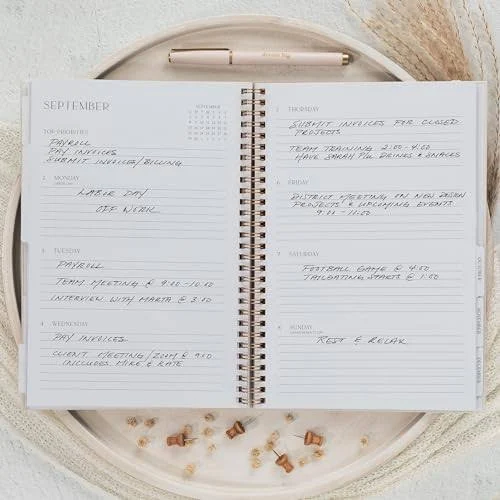 SEPTEMBER
SEPTEMBER
TOP PRIORITIES
PAYROLL
PAY INVOICES
SUBMIT INVOICES/BILLING
2 MONDAY
LABOR DAY
LABOR DAY
OFF WORK
3 TUESDAY
PAYROLL
TEAM MEETING @ 9:00-10:00
INTERVIEW WITH MARTA @ 3:00
4 WEDNESDAY
PAY INVOICES
CLIENT MEETING/ZOOM @ 9:00
INCLUDES MIKE & KATE
5 THURSDAY
SUBMIT INVOICES FOR CLOSED
PROJECTS
TEAM TRAINING 2:00-4:00
HAVE SARAH P/U DRINKS & SNACKS
6 FRIDAY
DISTRICT MEETING ON NEW DESIGN
PROJECTS & UPCOMING EVENTS
9:00-11:00
7 SATURDAY
FOOTBALL GAME @ 4:00
TAILGATING STARTS @ 1:00
8 SUNDAY
GRANDPARENTS DAY
REST & RELAX
OCTOBER
NOVEMBER
DECEMBER